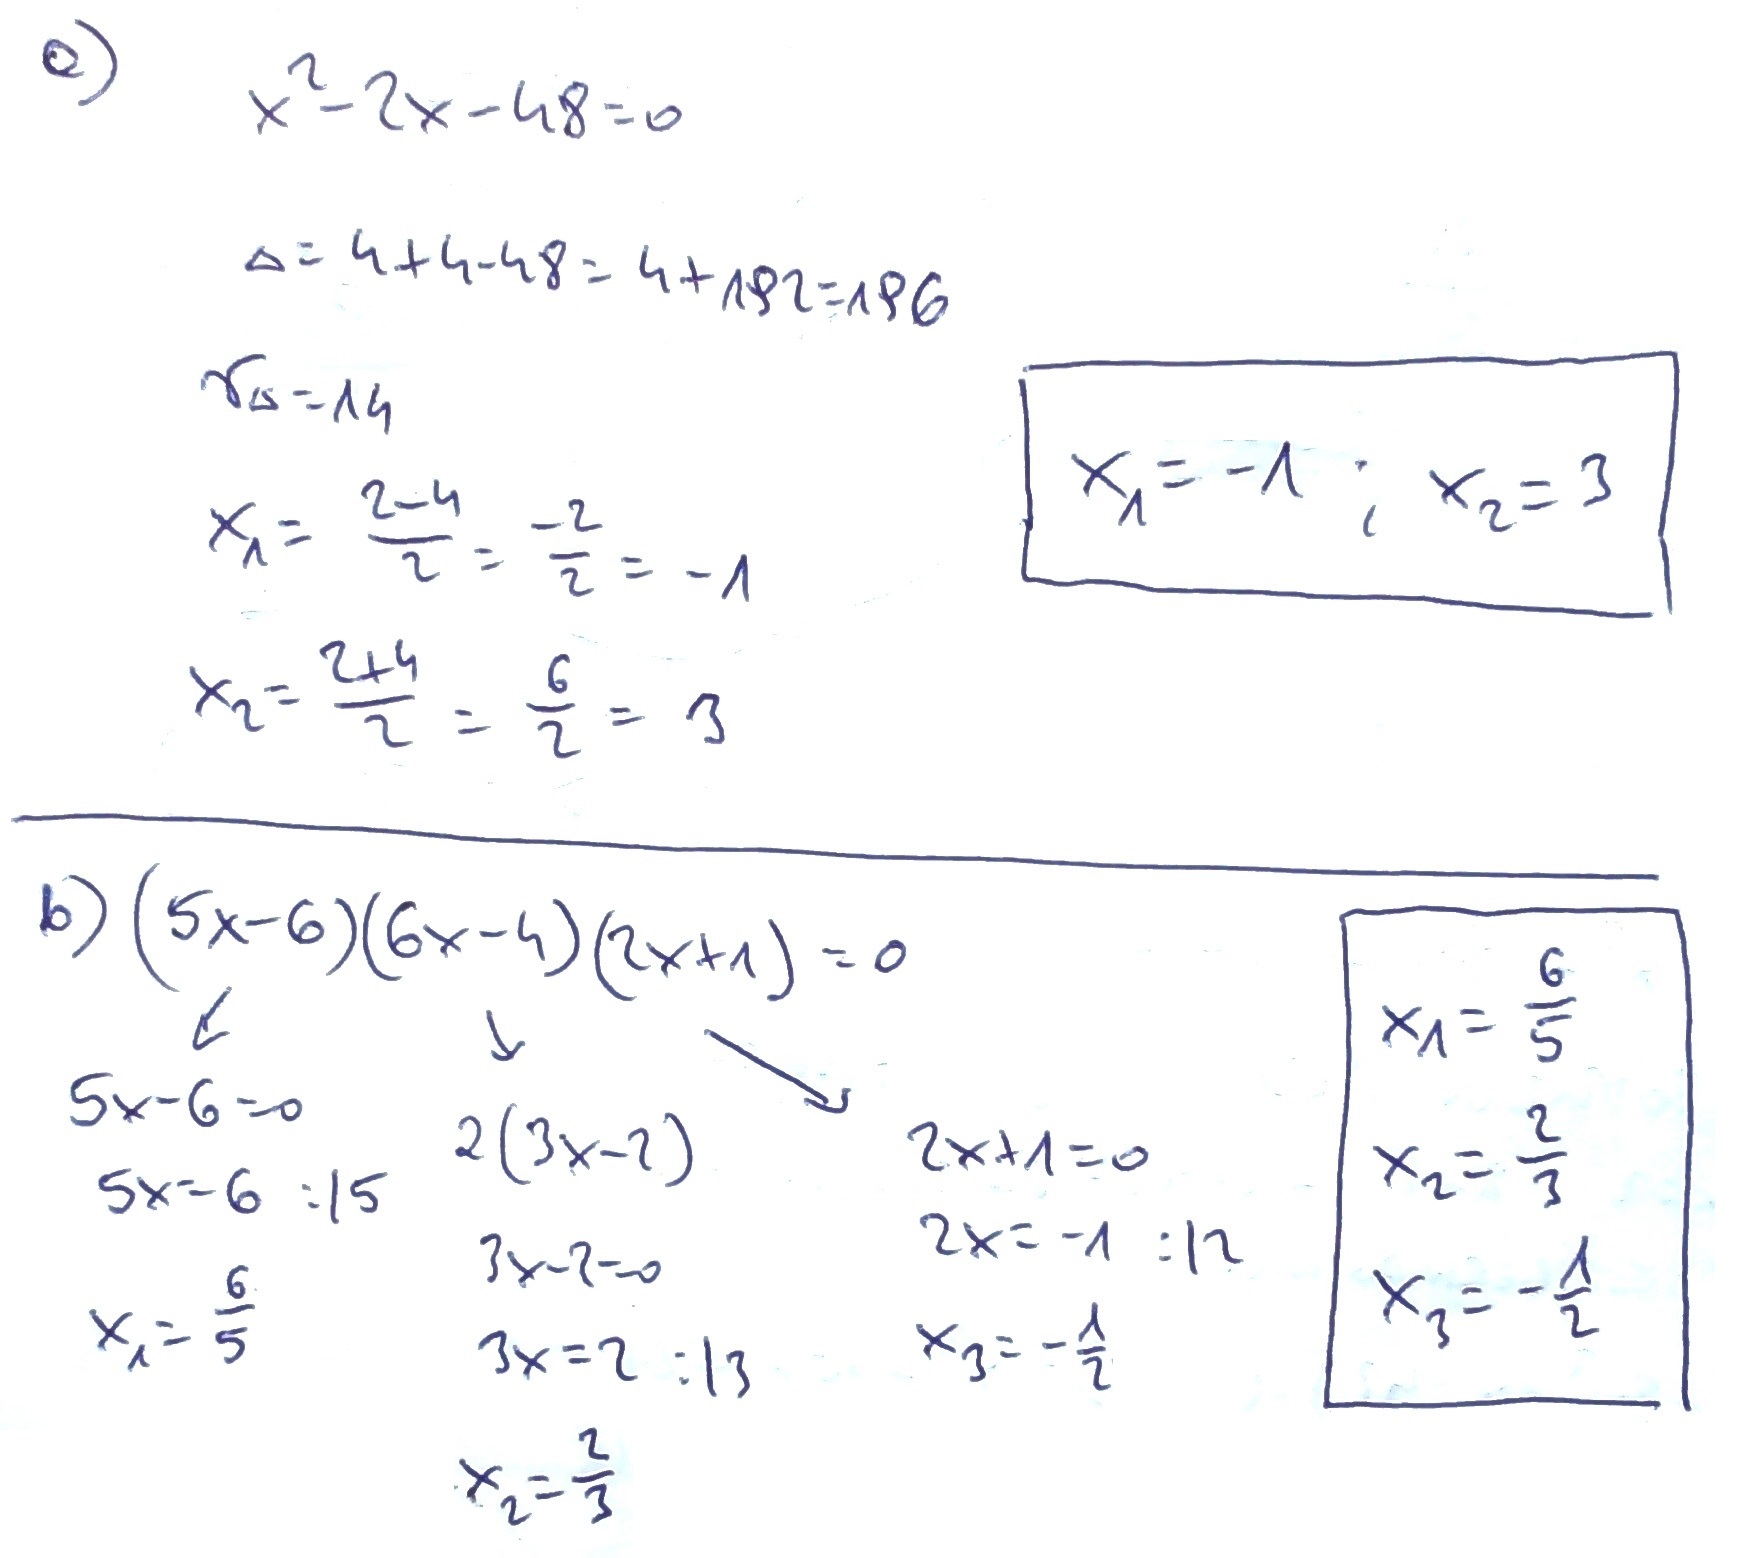 a)
x² - 2x - 48 = 0
Δ = 4 + 4·48 = 4 + 192 = 196
√Δ = 14
x₁ = (2-4)/2 = -2/2 = -1
x₂ = (2+4)/2 = 6/2 = 3
x₁ = -1 ; x₂ = 3
b) (5x-6)(6x-4)(2x+1) = 0
5x-6=0
5x=6 :|5
x₁ = 6/5
2(3x-2)
3x-2=0
3x=2 :|3
x₂ = 2/3
2x+1=0
2x=-1 :|2
x₃ = -1/2
x₁ = 6/5
x₂ = 2/3
x₃ = -1/2